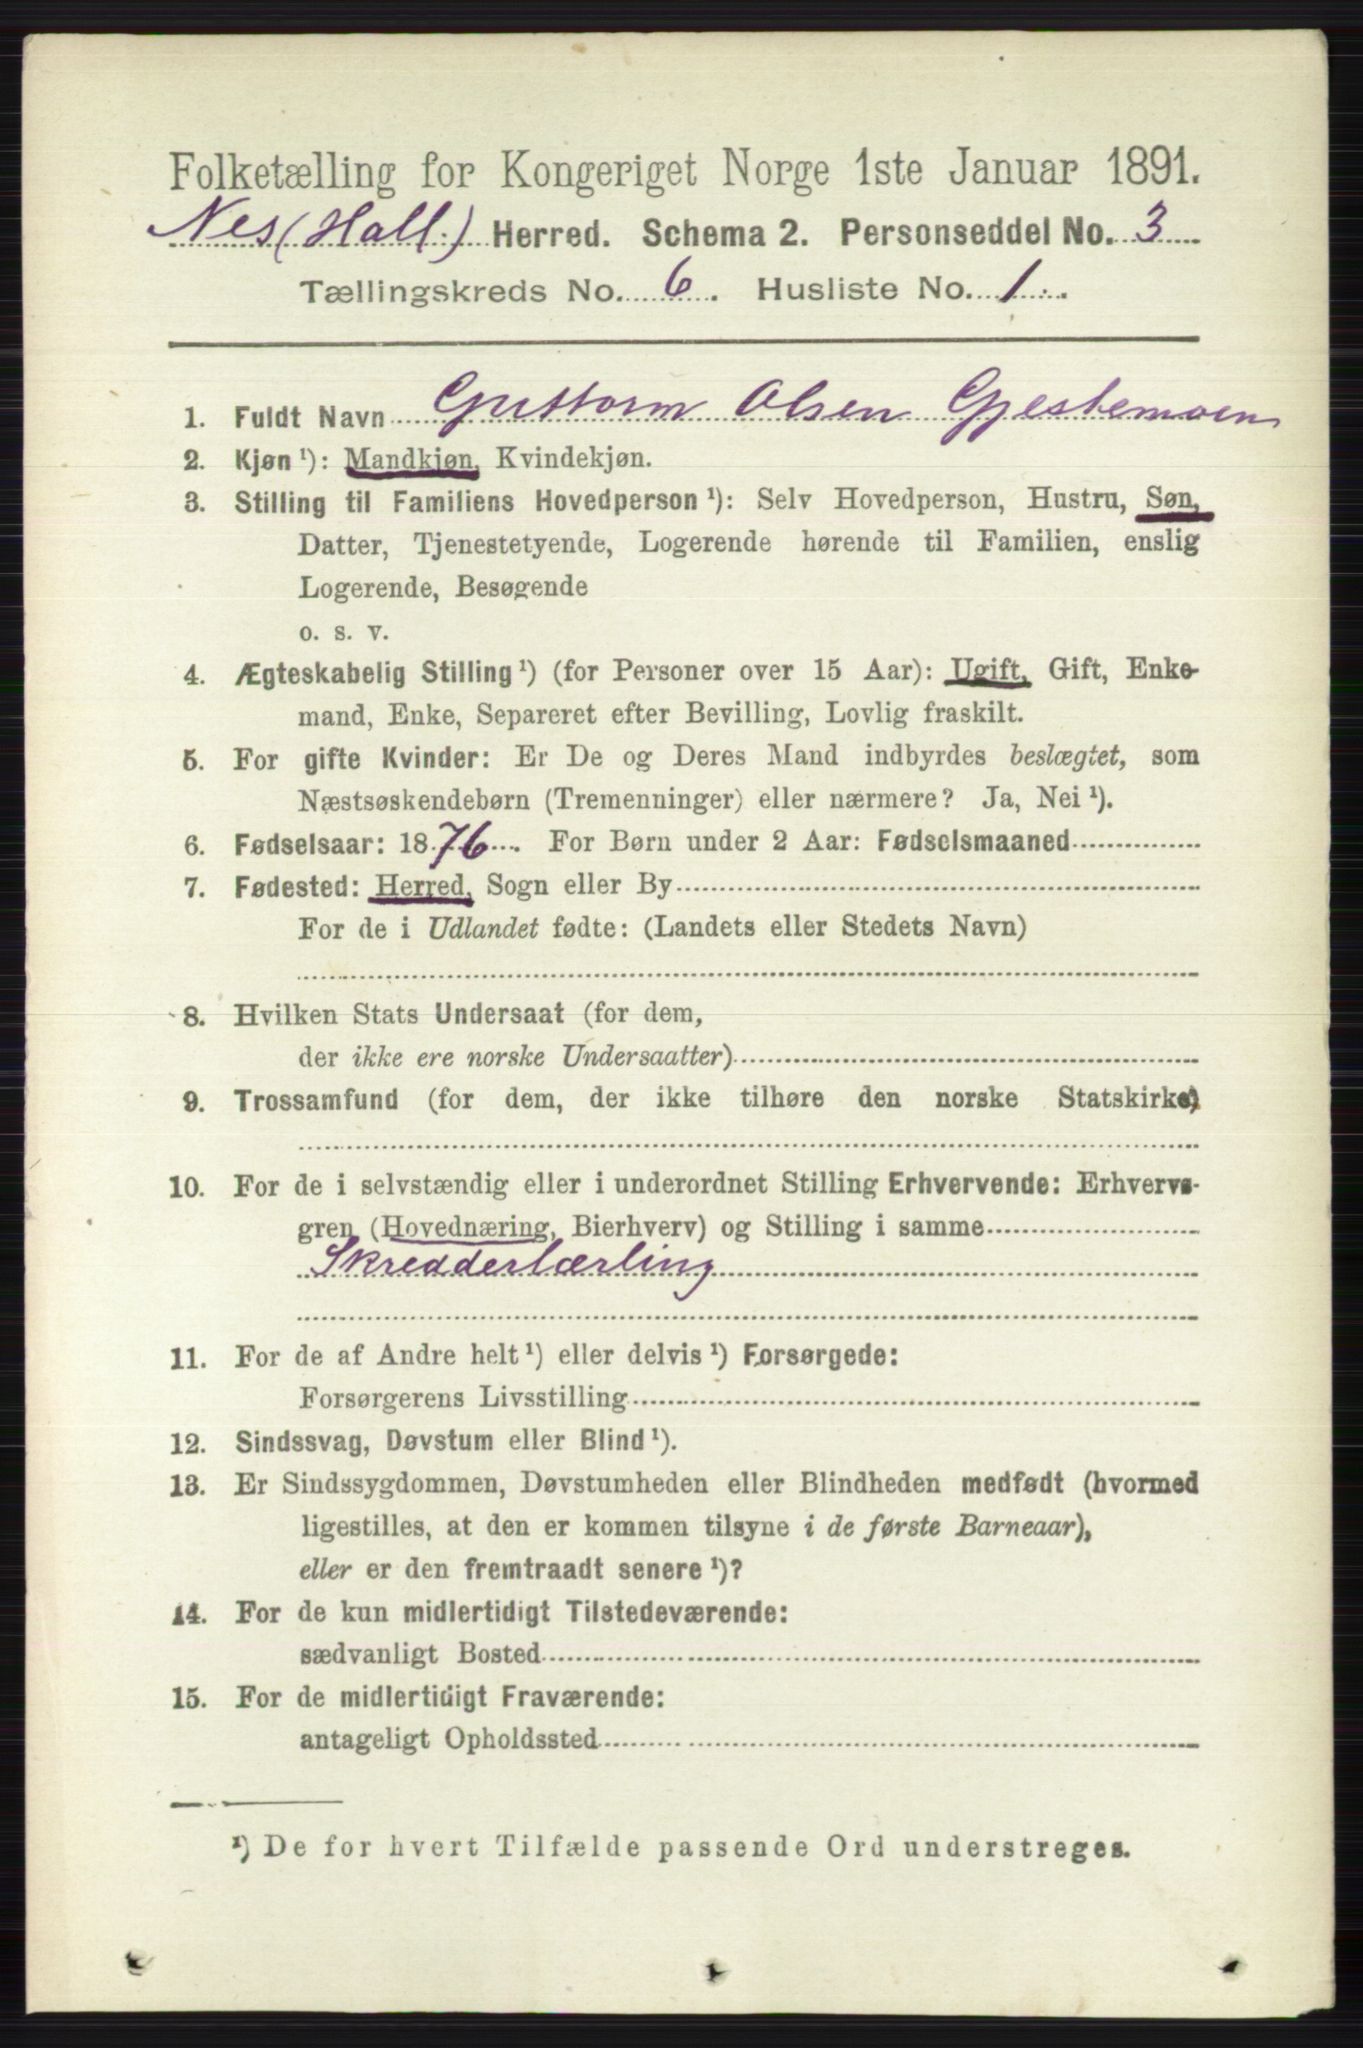 Folketælling for Kongeriget Norge 1ste Januar 1891.
Nes (Hall.) Herred. Schema 2. Personseddel No. 3
Tællingskreds No. 6. Husliste No. 1.
1. Fuldt Navn Guttorm Olsen Gjestemoen
2. Kjøn ¹): Mandkjøn, Kvindekjøn.
3. Stilling til Familiens Hovedperson ¹): Selv Hovedperson, Hustru, Søn,
Datter, Tjenestetyende, Logerende hørende til Familien, enslig
Logerende, Besøgende
o. s. v.
4. Ægteskabelig Stilling ¹) (for Personer over 15 Aar): Ugift, Gift, Enke-
mand, Enke, Separeret efter Bevilling, Lovlig fraskilt.
5. For gifte Kvinder: Er De og Deres Mand indbyrdes beslægtet, som
Næstsøskendebørn (Tremenninger) eller nærmere? Ja, Nei ¹).
6. Fødselsaar: 1876. For Børn under 2 Aar: Fødselsmaaned
7. Fødested: Herred, Sogn eller By
For de i Udlandet fødte: (Landets eller Stedets Navn)
8. Hvilken Stats Undersaat (for dem,
der ikke ere norske Undersaatter)
9. Trossamfund (for dem, der ikke tilhøre den norske Statskirke)
10. For de i selvstændig eller i underordnet Stilling Erhvervende: Erhvervs-
gren (Hovednæring, Bierhverv) og Stilling i samme
Skredderlærling
11. For de af Andre helt ¹) eller delvis ¹) Forsørgede:
Forsørgerens Livsstilling
12. Sindssvag, Døvstum eller Blind ¹).
13. Er Sindssygdommen, Døvstumheden eller Blindheden medfødt (hvormed
ligestilles, at den er kommen tilsyne i de første Barneaar),
eller er den fremtraadt senere ¹)?
14. For de kun midlertidigt Tilstedeværende:
sædvanligt Bosted
15. For de midlertidigt Fraværende:
antageligt Opholdssted
¹) De for hvert Tilfælde passende Ord understreges.